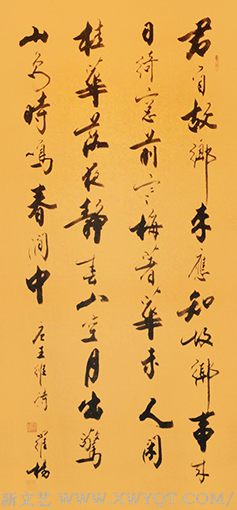 君自故鄉来應知故鄉事来
日綺窓前寒梅著華未人閑
桂華落夜静春山空月出驚
山鳥時鳴春澗中
唐王維詩 羅楊
WWW.XWYQT.COM